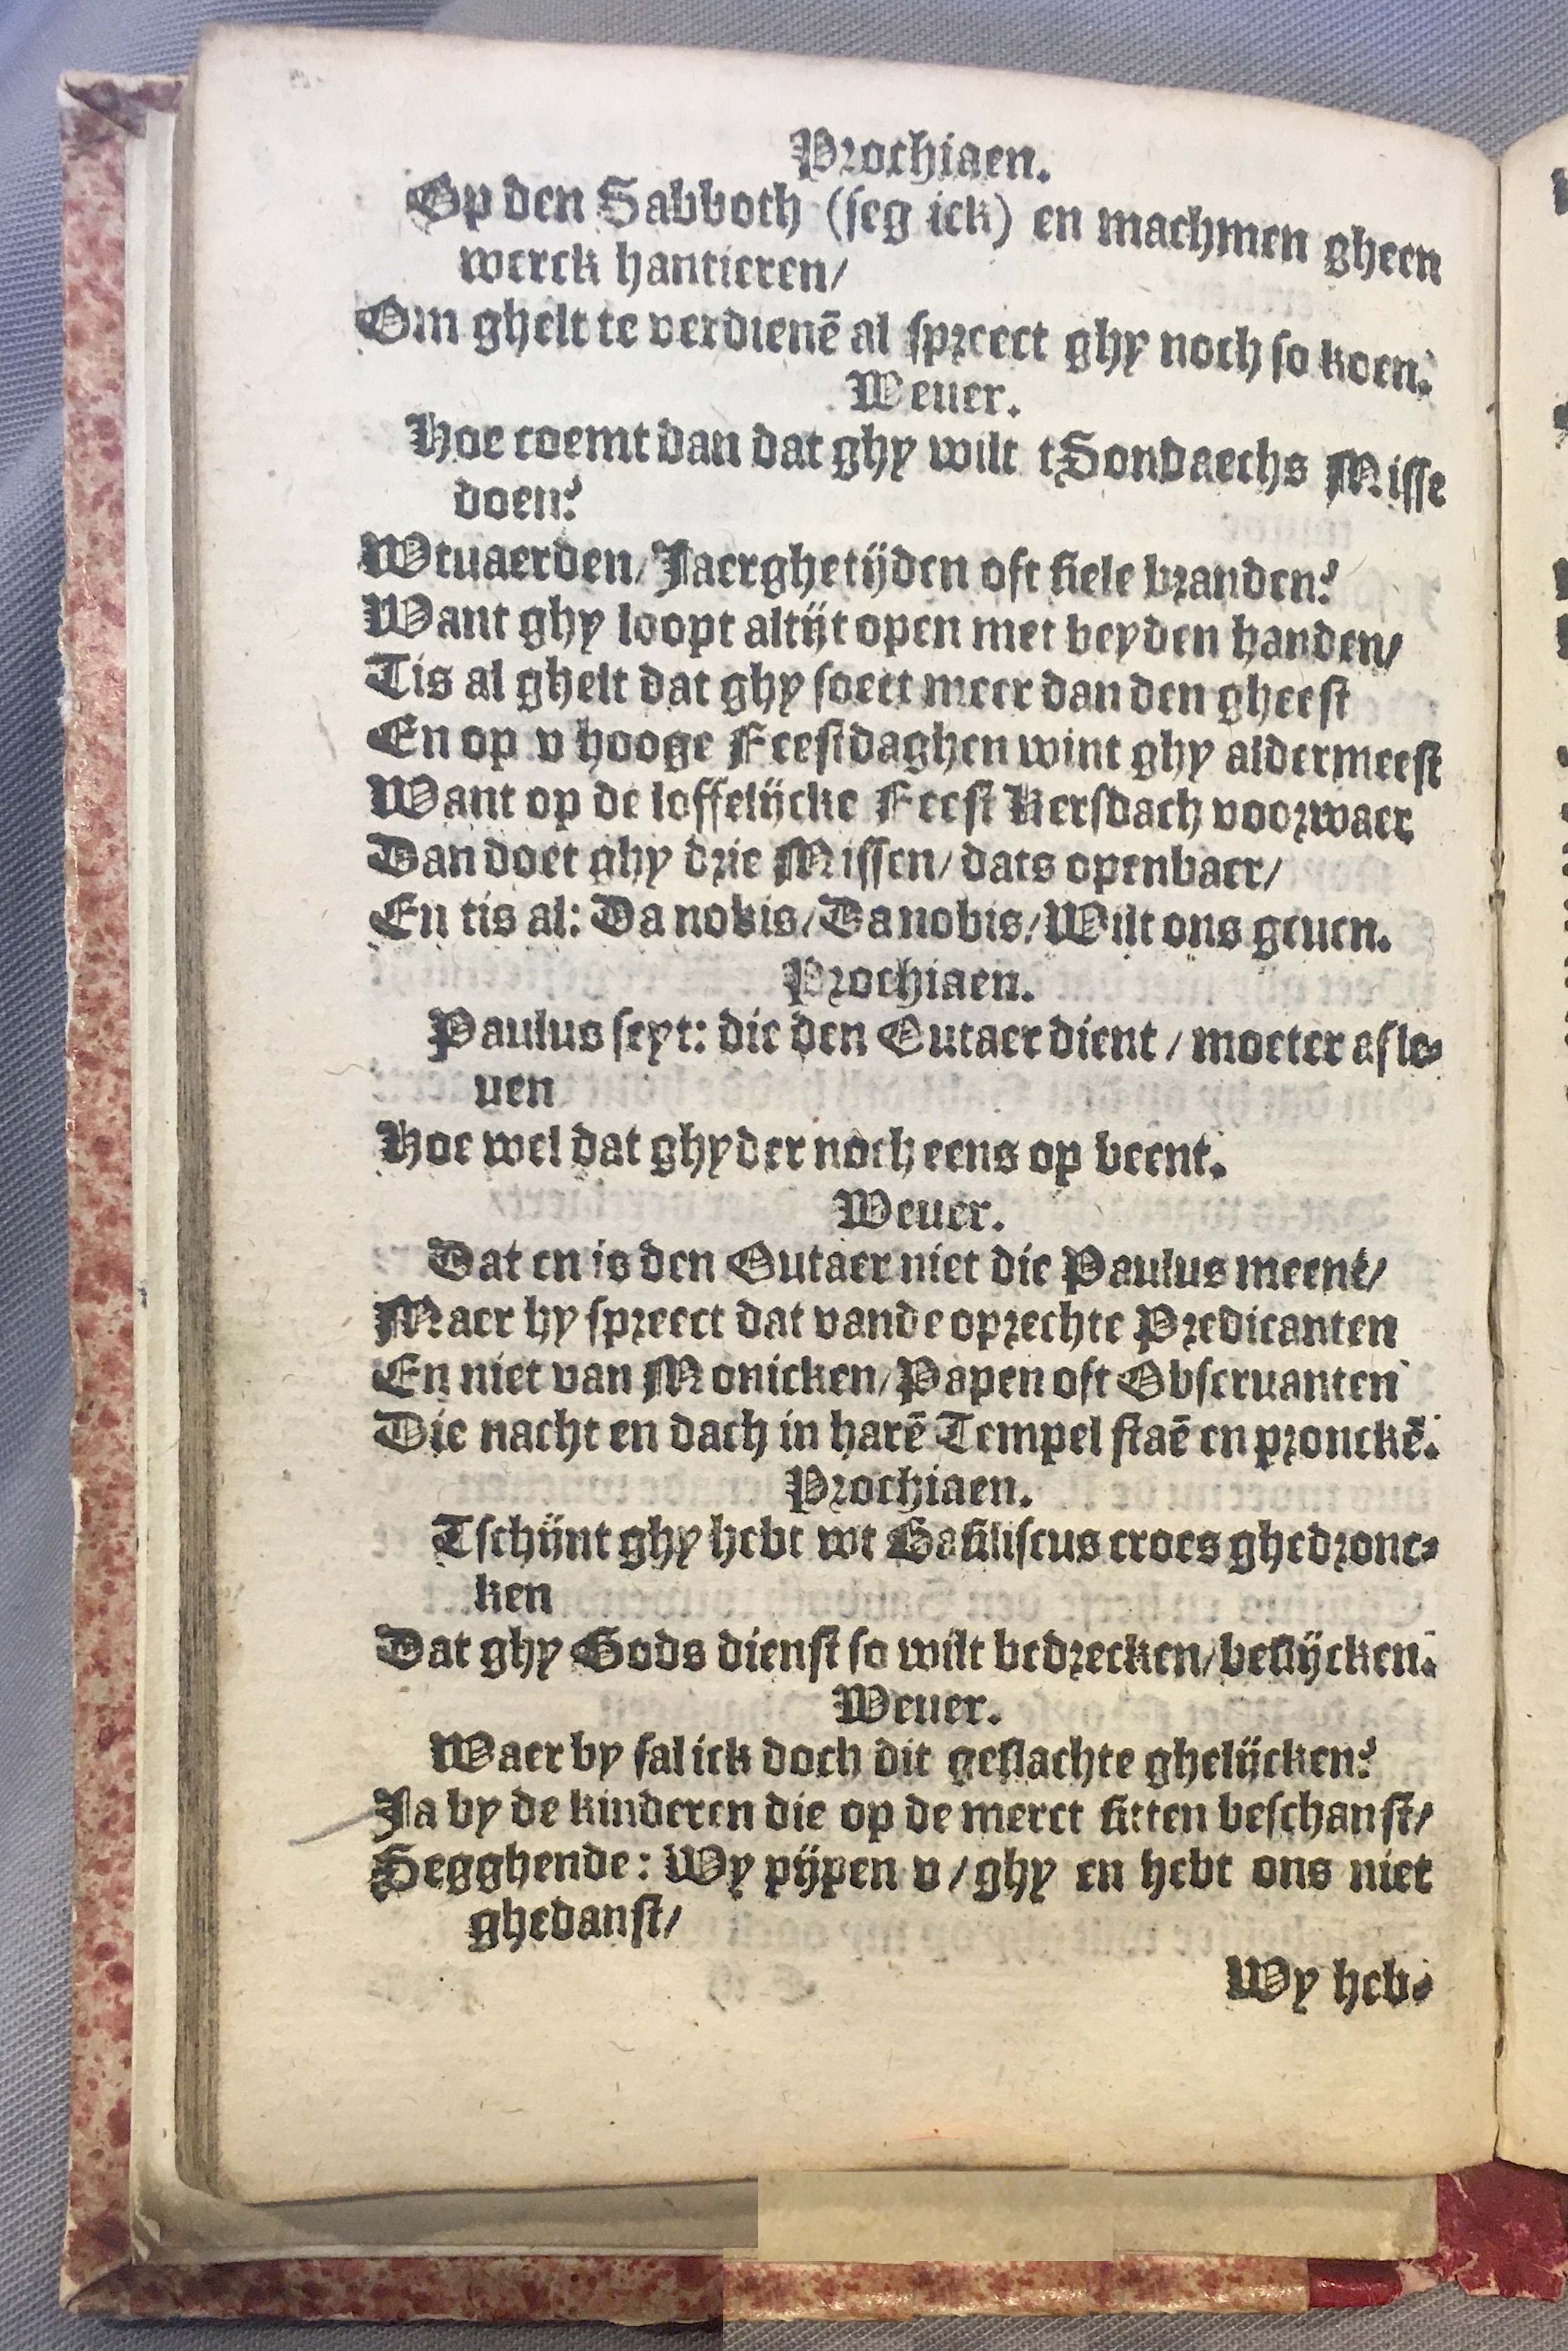 Prochiaen.
Op den Sabboth (seg ick) en machmen gheen
werck hantieren/
Om ghelt te verdienē al spreect ghy noch so koen.
Weuer.
Hoe coemt dan dat ghy wilt tSondaechs Misse
doen?
Wtuaerden/ Jaerghetijden oft siele branden?
Want ghy loopt altijt open met beyden handen/
Tis al ghelt dat ghy soect meer dan den gheest
En op v hooge Feestdaghen wint ghy aldermeest
Want op de loffelijcke Feest Kersdach voorwaer
Dan doet ghy drie Missen/ dats openbaer/
En tis al: Da nobis/ Da nobis/ Wilt ons geuen.
Prochiaen.
Paulus seyt: die den Outaer dient / moeter af le-
uen
Hoe wel dat ghyder noch eens op beent.
Weuer.
Dat en is den Outaer niet die Paulus meent/
Maer hy spreect dat vande oprechte Predicanten
En niet van Monicken/ Papen oft Obseruanten
Die nacht en dach in harē Tempel staē en pronckē.
Prochiaen.
Tschijnt ghy hebt wt Basiliscus croes ghedronc-
ken
Dat ghy Gods dienst so wilt bedrecken/ beslijcken.
Weuer.
Waer by sal ick doch dit geslachte ghelijcken?
Ja by de kinderen die op de merct sitten beschanst/
Segghende: Wy pijpen v / ghy en hebt ons niet
ghedanst/
Wy heb-